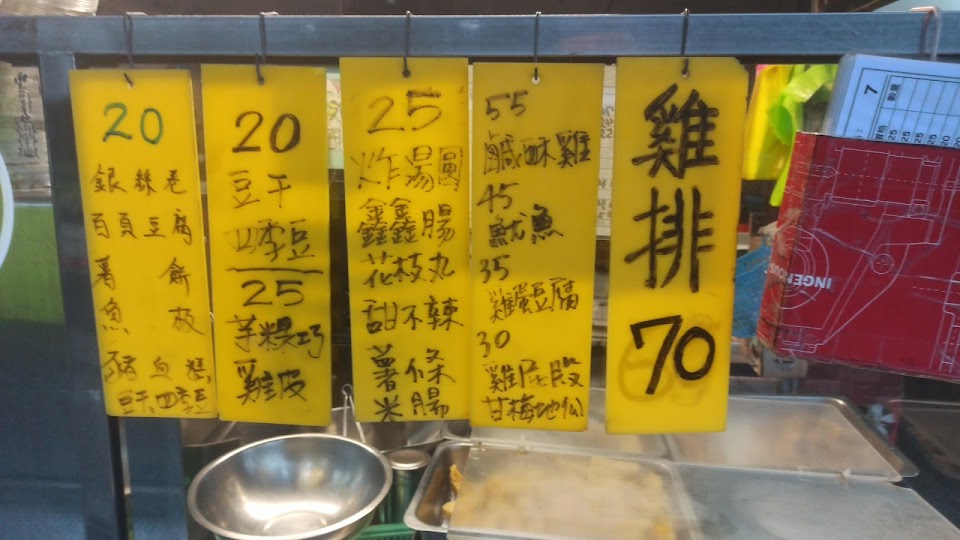 20
銀絲卷
百頁豆腐
薯餅
魚板
豬血糕
20
豆干
四季豆
25
芋粿巧
雞皮
25
炸湯圓
鑫鑫腸
花枝丸
甜不辣
薯條
米腸
55
鹹酥雞
45
魷魚
35
雞蛋豆腐
30
雞屁股
甘梅地瓜
雞
排
70
7
數量
價格
25
25
25
25
20
INGEN